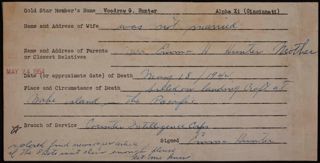 Gold Star Member's Name Woodrow G. Hunter Alpha Xi (Cincinnati)
Name and Address of Wife was not married
Name and Address of Parents Mrs Emma H Hunter Mother
or Closest Relatives
MAY 24 1954
Date (or approximate date) of Death May 18, 1944
Place and Circumstance of Death killed on landing Craft at
Wake island - The Pacific.
Branch of Service Counter Intelligence Corps
Signed Emma Hunter
enclosed find
of the Photo isnt clear enough please
let me know